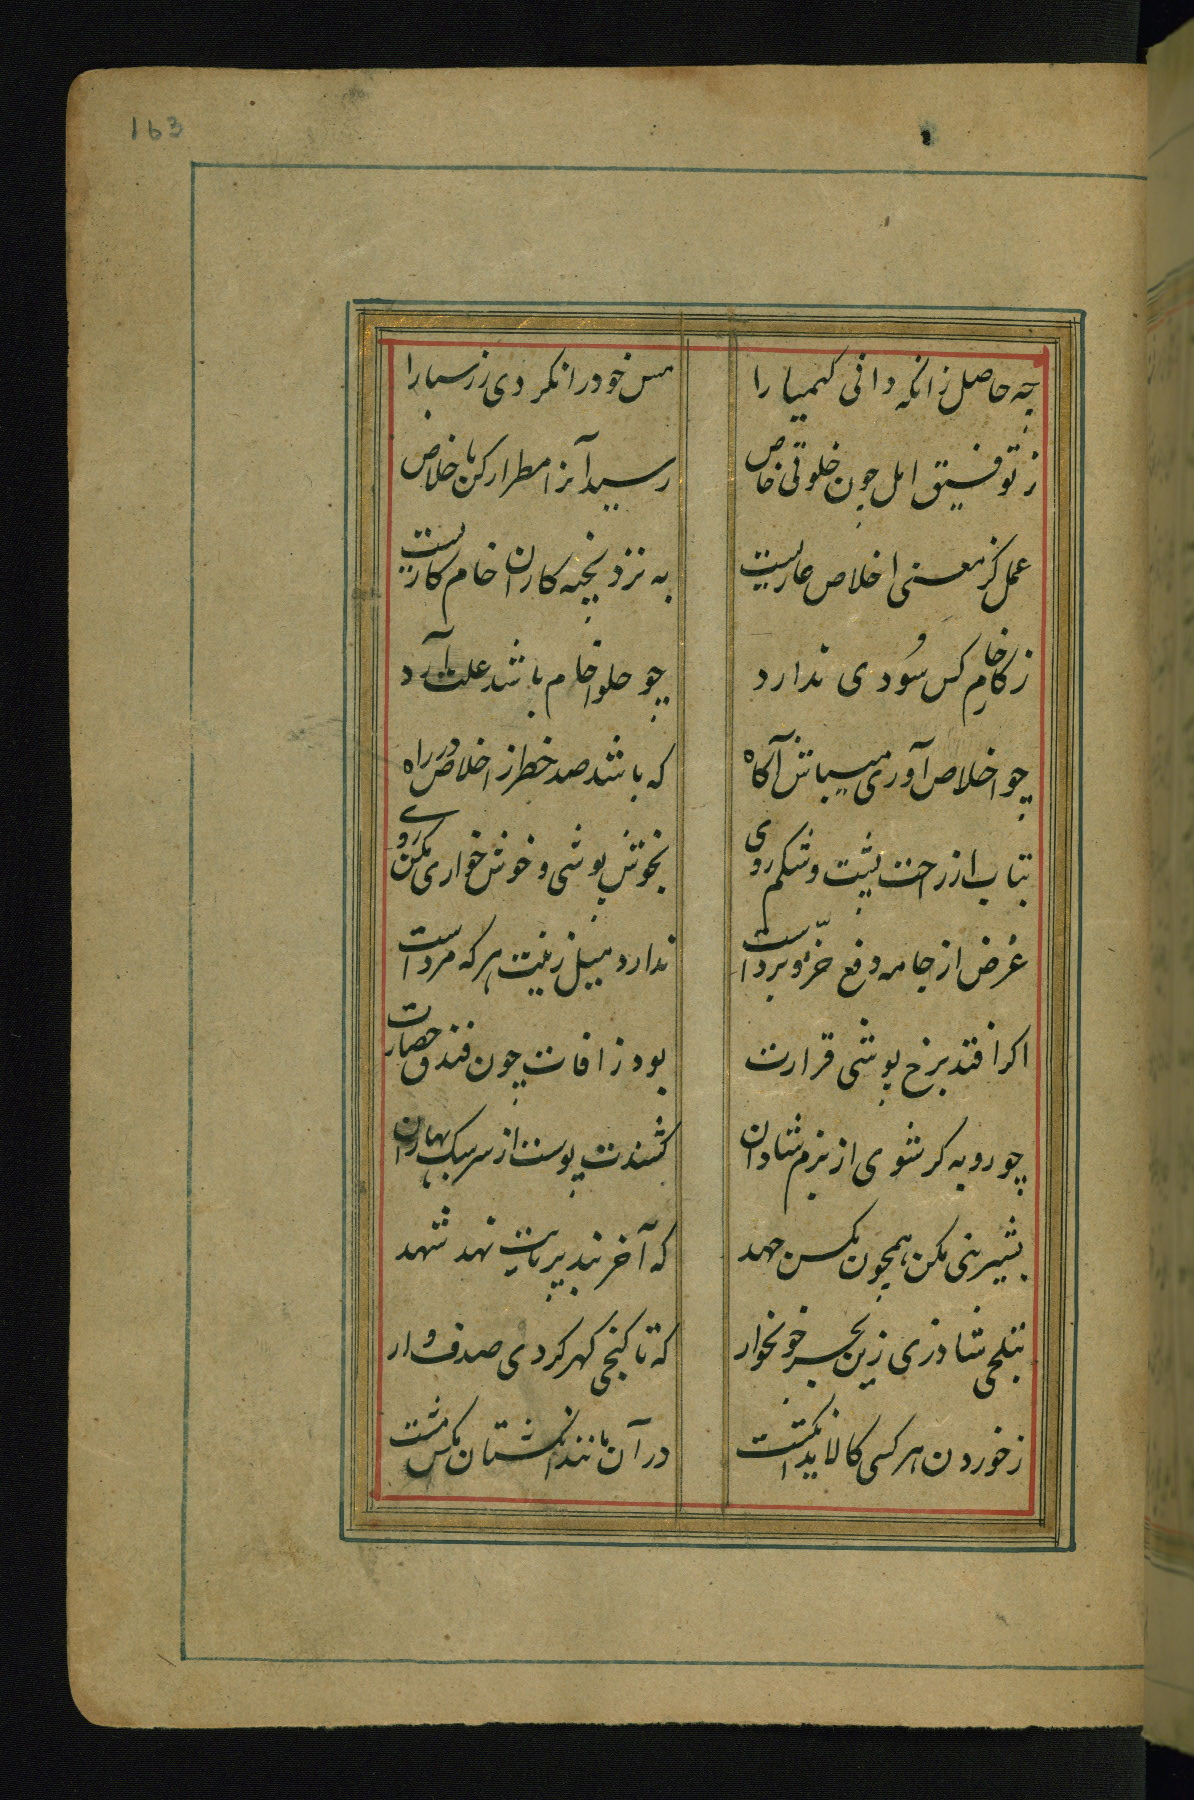 163
چه حاصل زانکه دانی کیمیا را مس خود را نکردی زر سارا
ز توفیق امل چون خلوتی خاص رسید آنرا مطرا کن باخلاص
عمل کز معنی اخلاص عاریست به نزد پخته کاران خام کاریست
ز کار خام کس سودی ندارد چو حلوا خام باشد علت آرد
چو اخلاص آوری میباش آگاه که باشد صد خطر ز اخلاص در راه
بتاب از راحت پشت و شکم روی بخوش پوشی و خوش خواری مکن روی
غرض از جامه دفع حرّ و برد است ندارد میل زینت هر که مرد است
اگر افتد برخ پوشی قرارت بود ز آفات چون فندق حصارت
چو روبه گر شوی از بزم شادان کشندت پوست از سر سگ نهادان
بشیرینی مکن همچون مگس جهد که آخر بند بر پایت نهد شهد
بتلخی شاد زی زین بحر خونخوار که تا گنجی گهر گردی صدف وار
ز خوردن هر کسی کالاید انگشت در آن مانند انگشتان مکن مشت